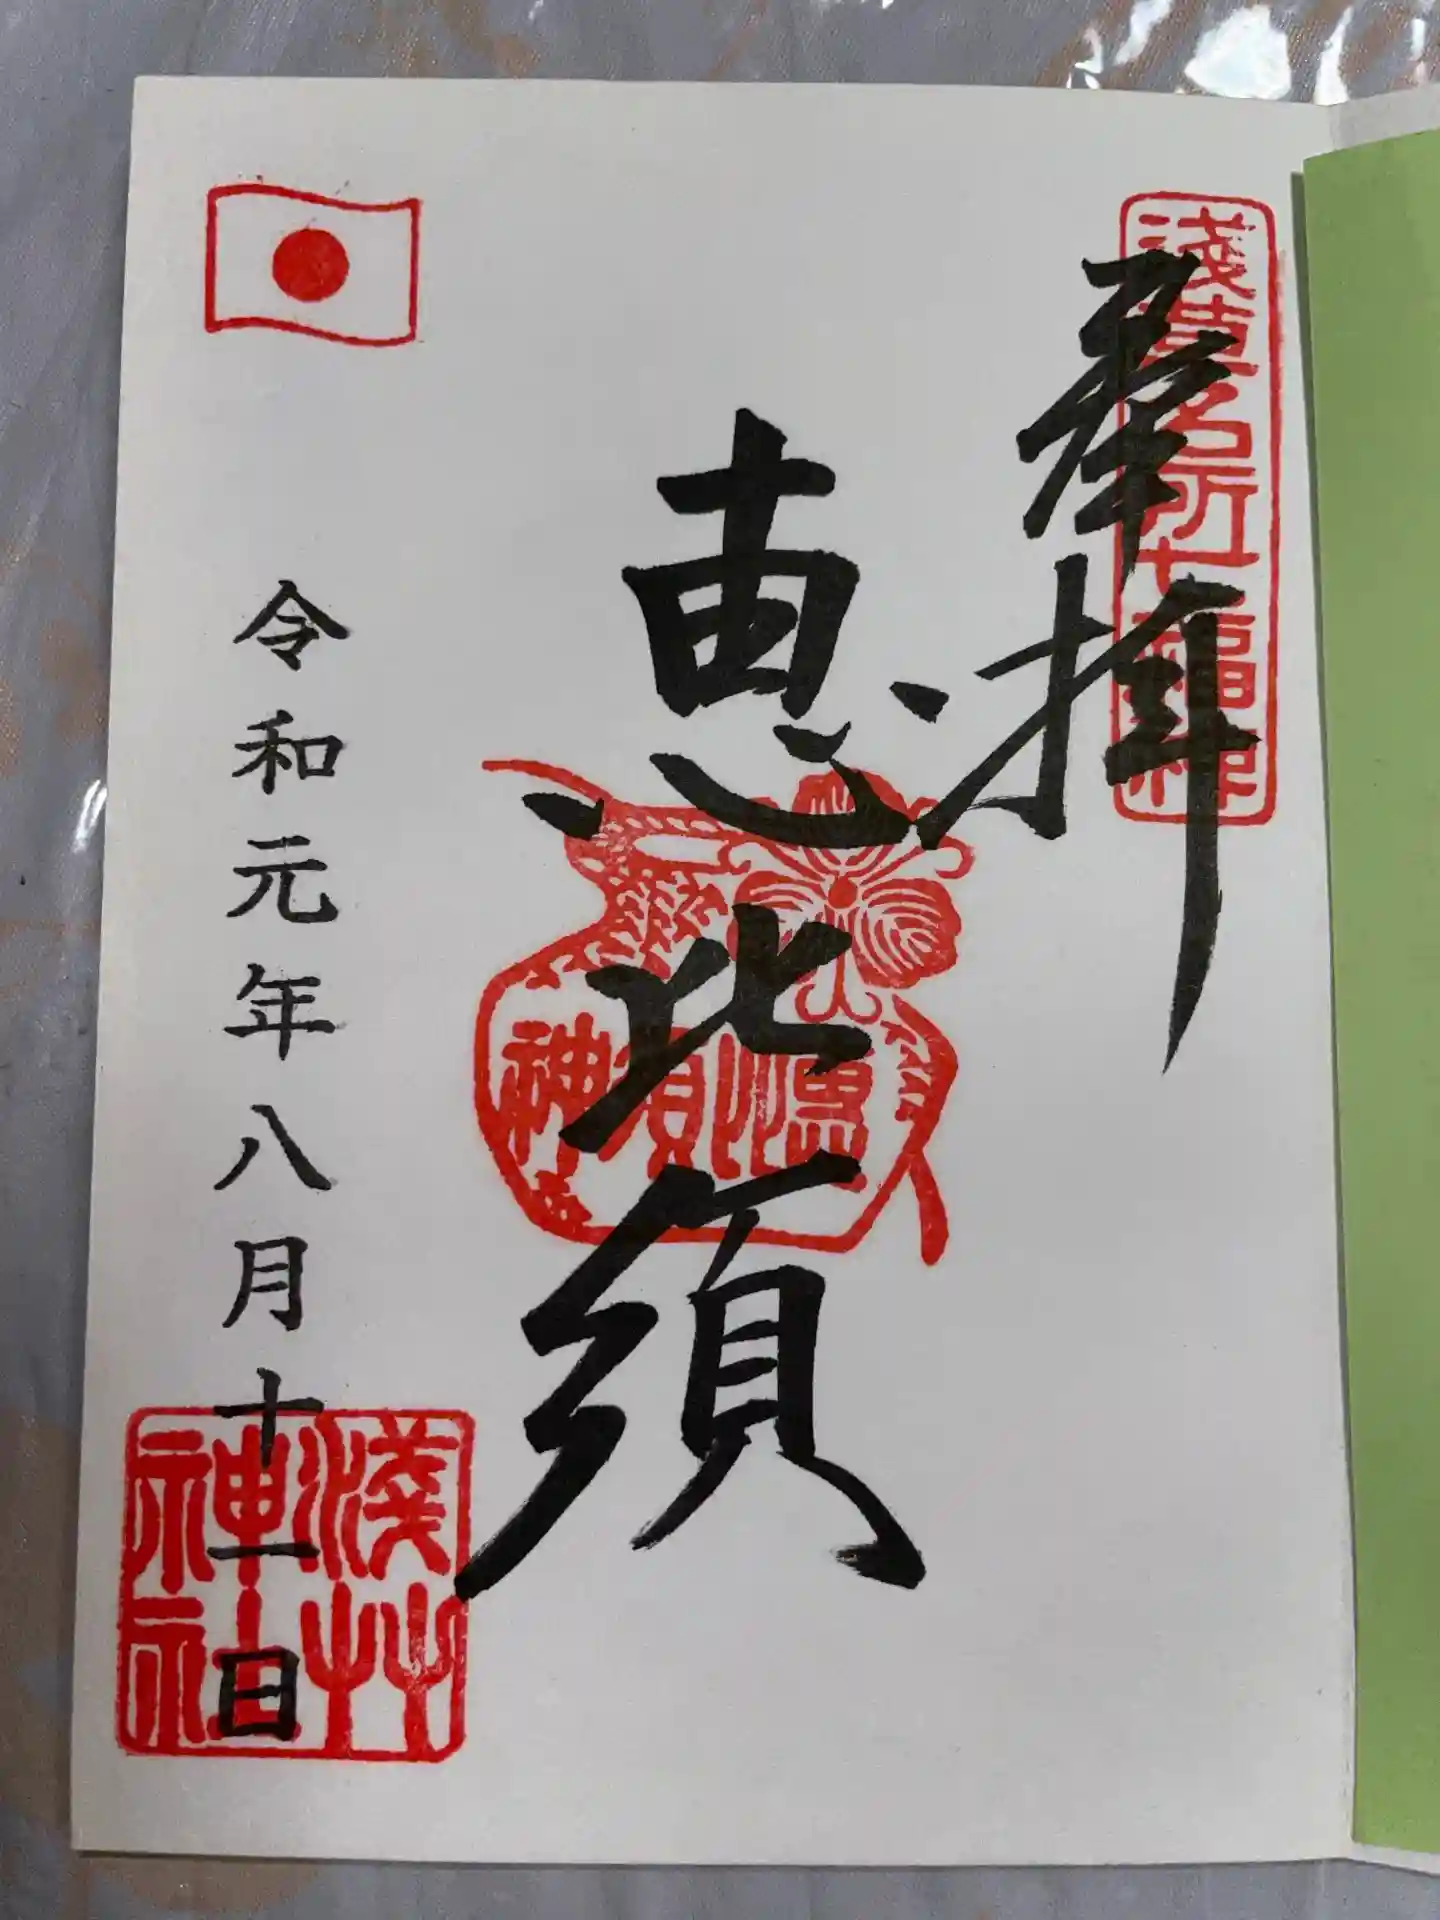 奉拝
淺草名所七福神
恵比須
恵比須神
令和元年八月十一日
淺草神社